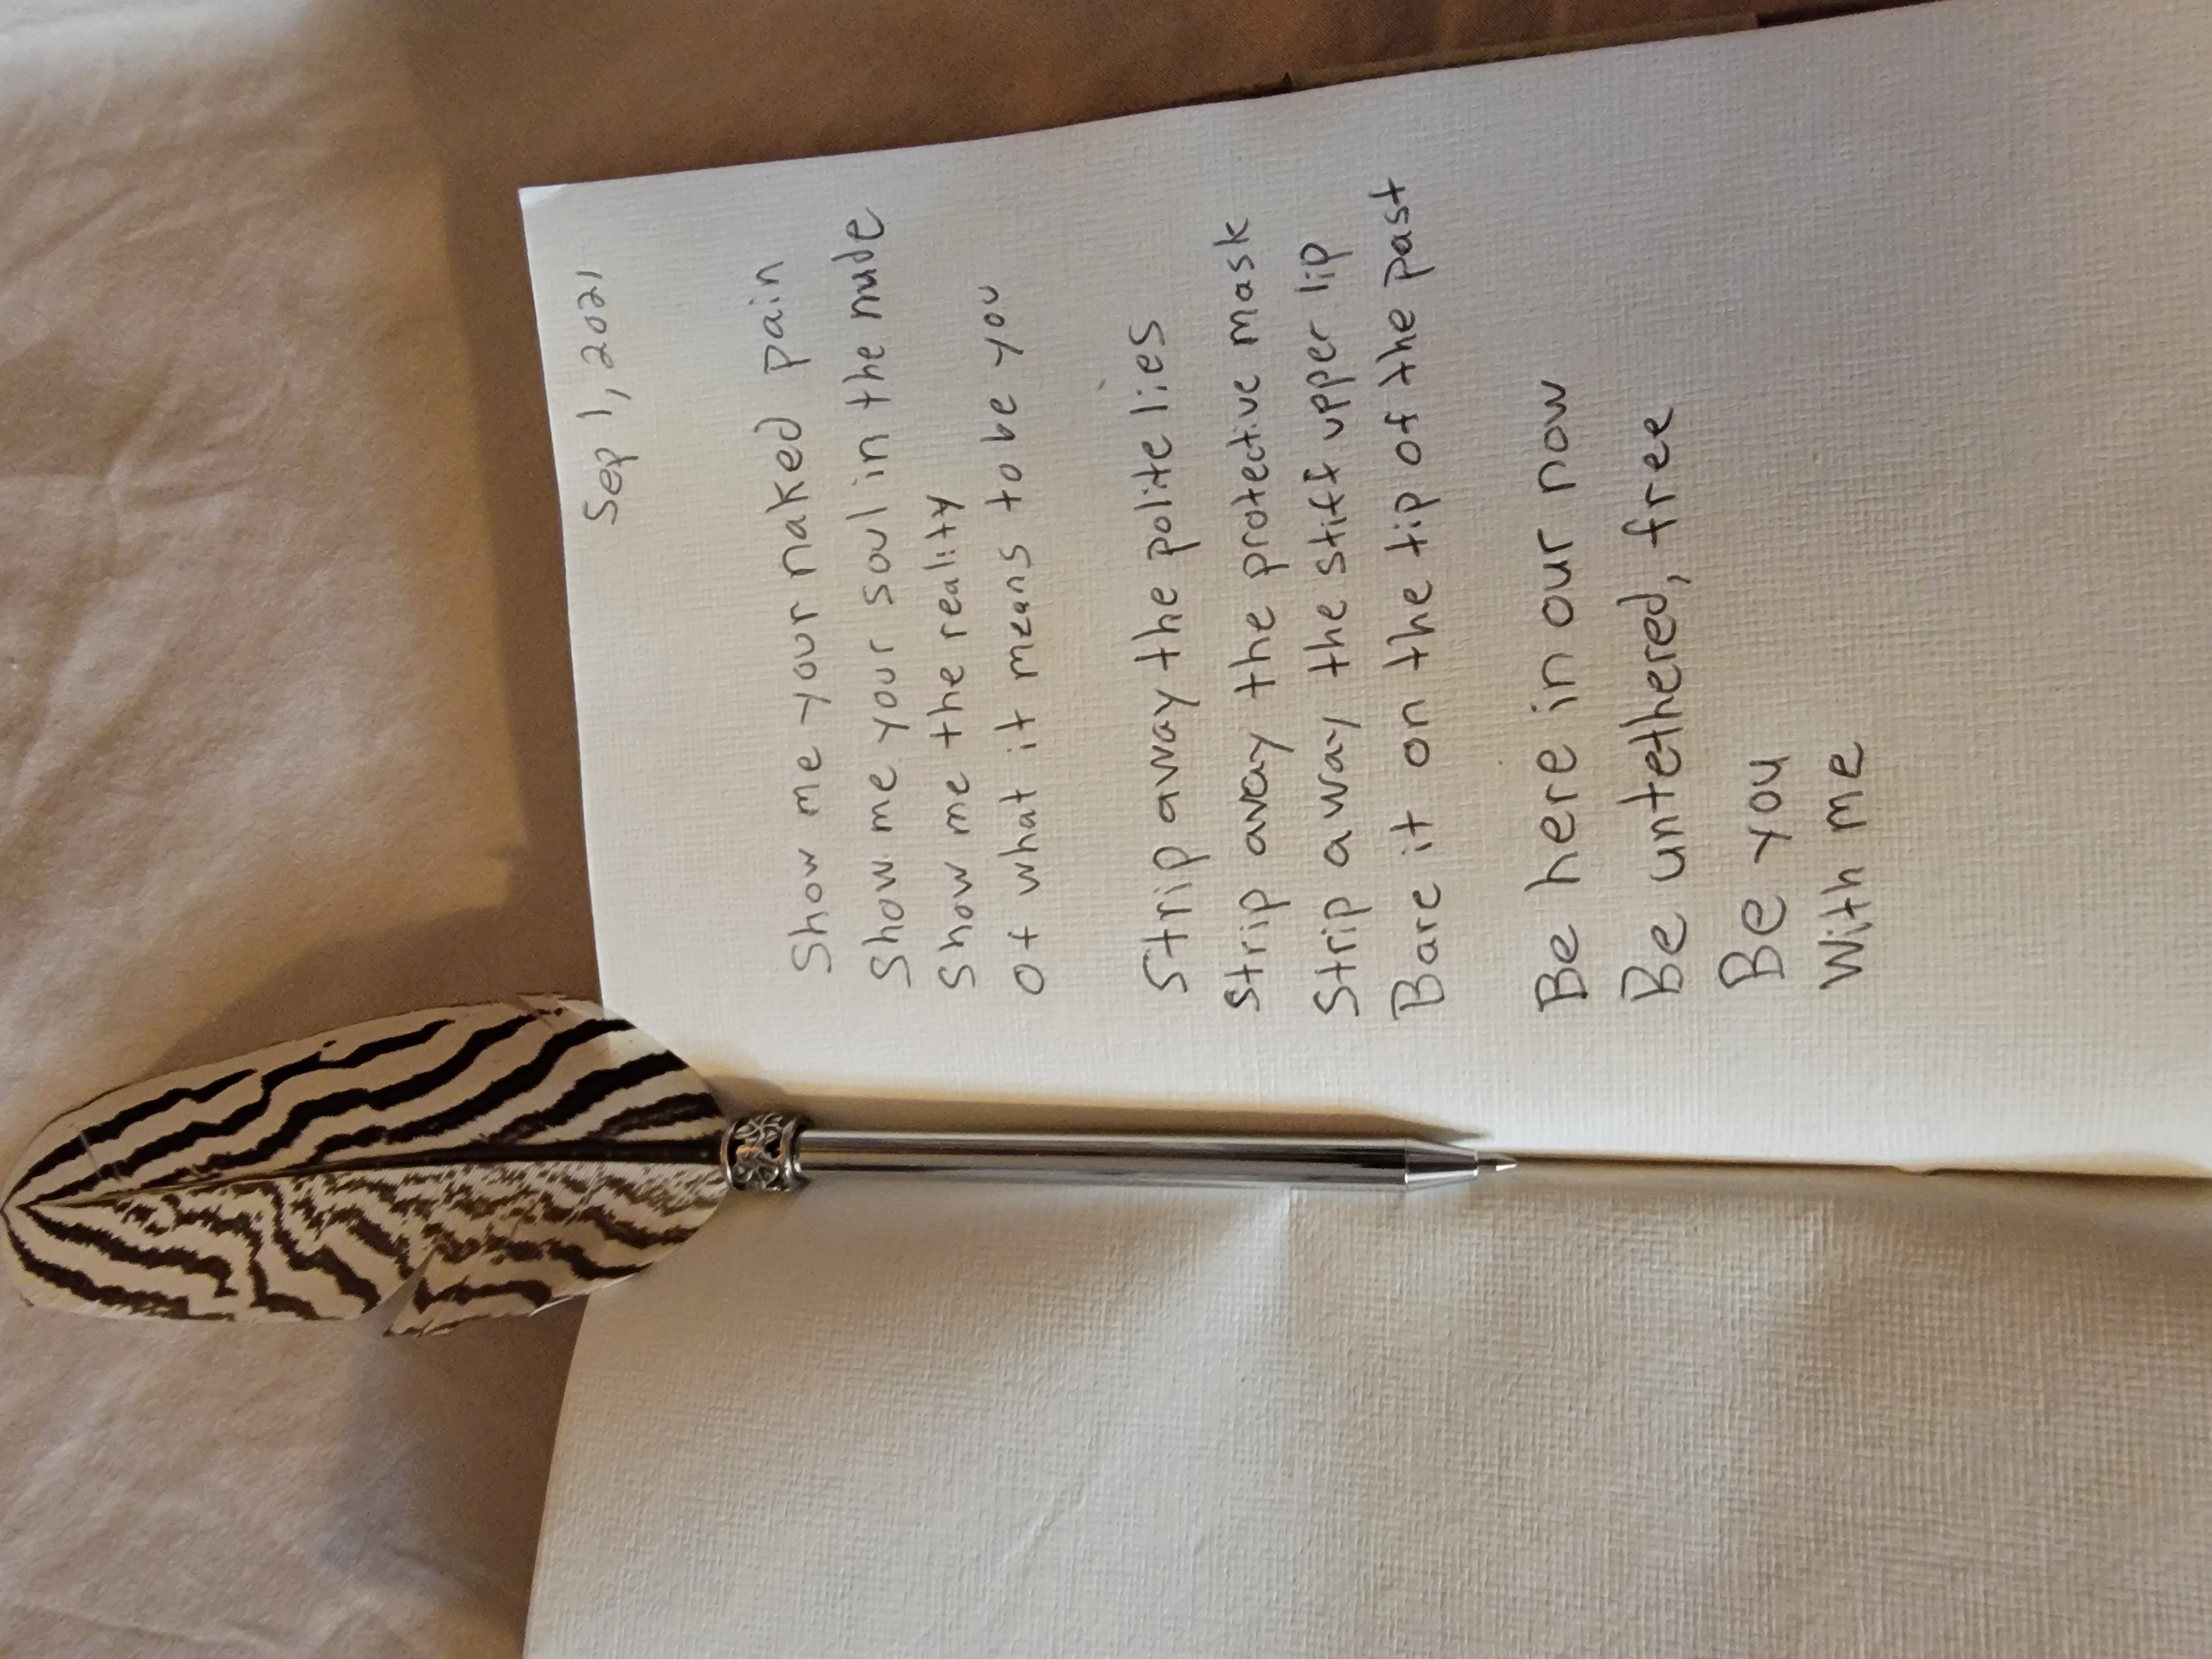 Sep 1, 2021
Show me your naked pain
Show me your soul in the nude
Show me the reality
Of what it means to be you
Strip away the polite lies
Strip away the protective mask
Strip away the stiff upper lip
Bare it on the tip of the past
Be here in our now
Be untethered, free
Be you
With me